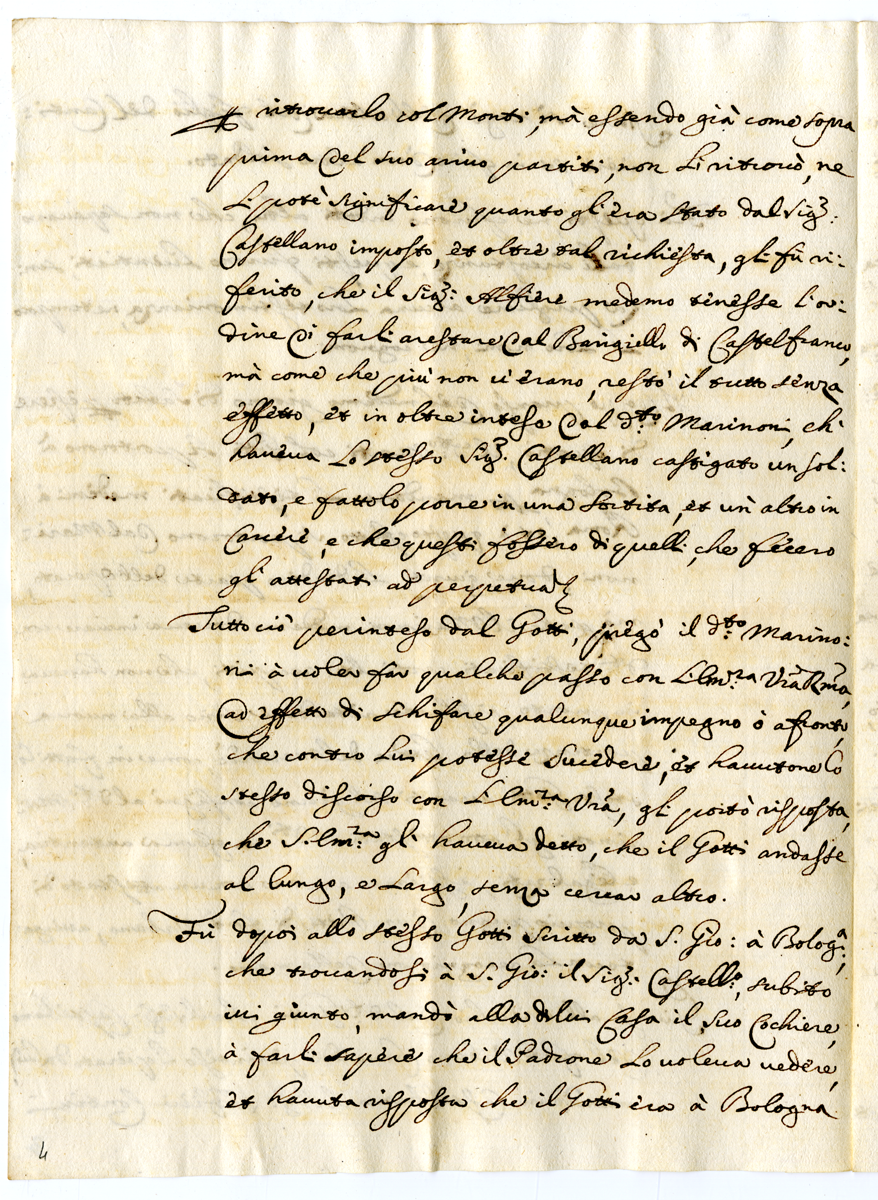 ritrouarlo col Monti, mà essendo già come sopra
prima del suo ariuo partiti, non li ritrouò, ne
li potè significare quanto gl'era stato dal Sig.r
Castellano imposto, et oltre tal richiesta, gli fù ri:
ferito, che il Sig.r Alfiere medemo tenesse l'or:
dine di farli arestare dal Barigiello di Castelfranco,
mà come che più non u'erano, restò il tutto senza
effetto, et in oltre inteso dal d.tto Marinoni, ch'
haueua lo stesso Sig.r Castellano castigato un sol:
dato, e fattolo porre in una sortita, et un'altro in
Carcere, e che questi fossero di quelli, che fecero
gli attestati ad perpetuam
Tutto ciò perinteso dal Gotti, pregò il d.tto Marino:
ni à uoler far qualche passo con Ill.ma Vra Rma,
ad effetto di schifare qualunque impegno ò afronto,
che contro lui potesse sucedere, et hauutone lo
stesso discorso con Ill.ma Vra, gli portò risposta,
che S. Ill.ma gli haueua detto, che il Gotti andasse
al lungo, e largo, senza cercar altro.
Fù dopoi allo stesso Gotti scritto da S. Gio: à Bolog.a,
che trouandosi à S. Gio: il Sig.r Castell.o, subito
iui giunto, mandò alla di lui Casa il suo Cochiere,
à farli sapere che il Padrone lo uoleua uedere,
et hauuta risposta che il Gotti era à Bologna
4